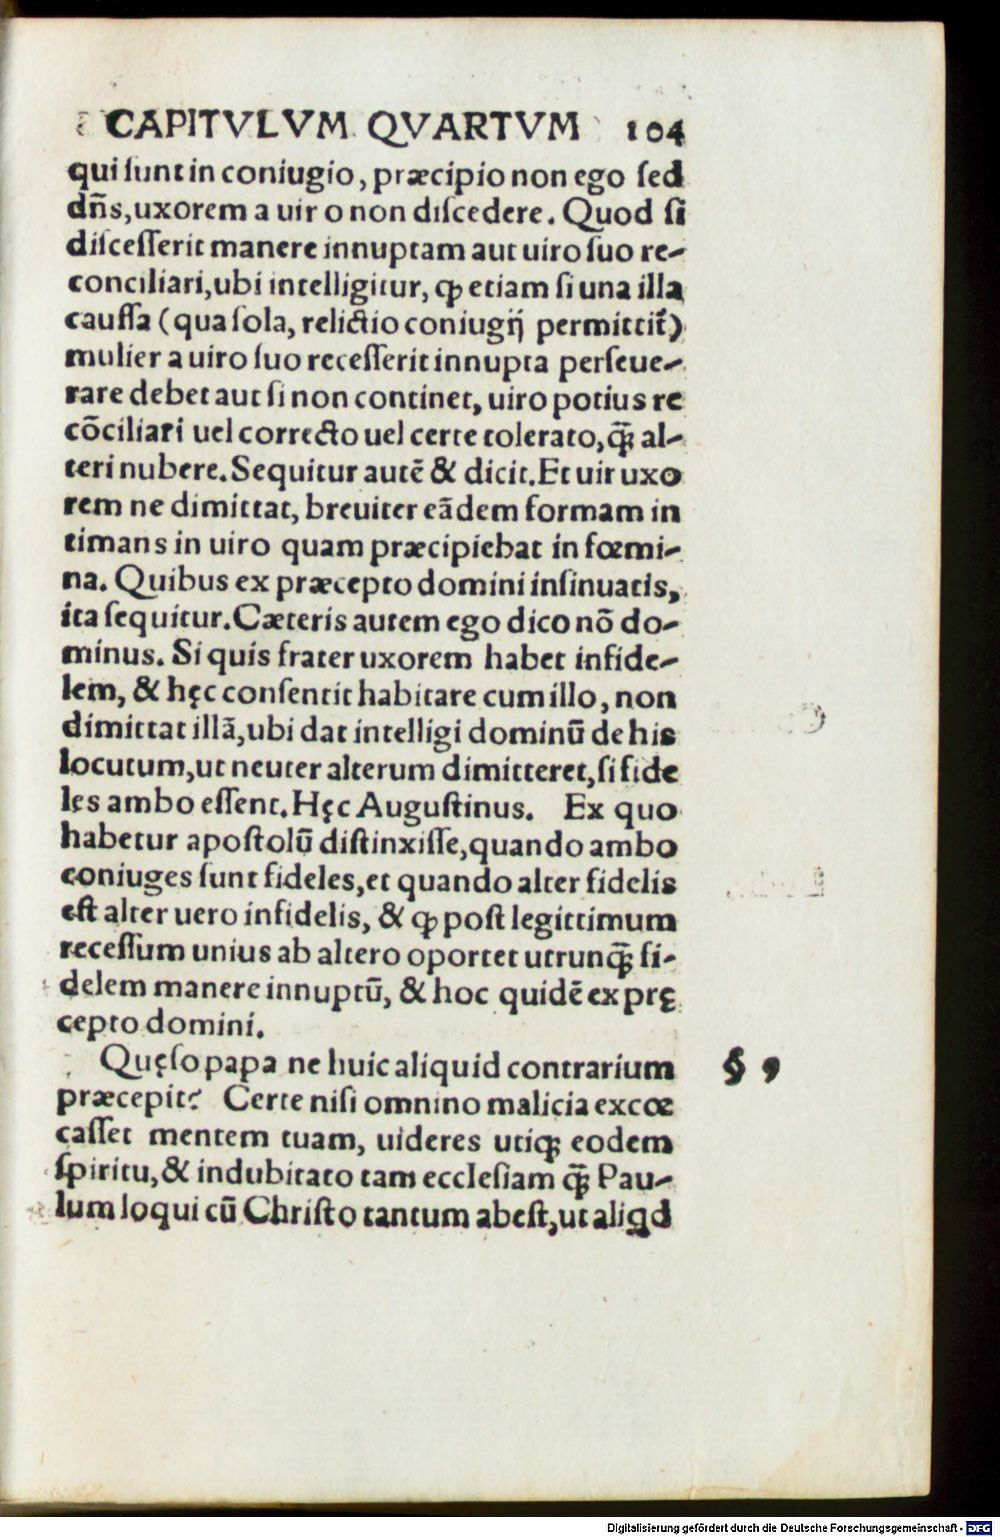 CAPITVLVM QVARTVM 104
qui ſunt in coniugio, præcipio non ego ſed
dn̄s, uxorem a uiro non diſcedere. Quod ſi
diſceſſerit manere innuptam aut uiro ſuo re-
conciliari, ubi intelligitur, ꝙ etiam ſi una illa
cauſſa (qua ſola, relictio coniugij permittit̃)
mulier a uiro ſuo receſſerit innupta perſeue-
rare debet aut ſi non continet, uiro potius re
cõciliari uel correcto uel certe tolerato, q̃ꝫ al-
teri nubere. Sequitur autẽ & dicit. Et uir uxo
rem ne dimittat, breuiter eãdem formam in
timans in uiro quam præcipiebat in fœmi-
na. Quibus ex præcepto domini inſinuatis,
ita ſequitur. Cæteris autem ego dico nõ do-
minus. Si quis frater uxorem habet infide-
lem, & hęc conſentit habitare cum illo, non
dimittat illã, ubi dat intelligi dominũ de his
locutum, ut neuter alterum dimitteret, ſi fide
les ambo eſſent. Hęc Auguſtinus. Ex quo
habetur apoſtolũ diſtinxiſſe, quando ambo
coniuges ſunt fideles, et quando alter fidelis
eſt alter uero infidelis, & ꝙ poſt legittimum
receſſum unius ab altero oportet utrunq̃ꝫ fi-
delem manere innuptũ, & hoc quidẽ ex prę
cepto domini.
Quęſo papa ne huic aliquid contrarium § 9
præcepit? Certe niſi omnino malicia excœ
caſſet mentem tuam, uideres utiqꝫ eodem
ſpiritu, & indubitato tam eccleſiam q̃ꝫ Pau-
lum loqui cũ Chriſto tantum abeſt, ut aliqd
Digitalisierung gefördert durch die Deutsche Forschungsgemeinschaft - DFG